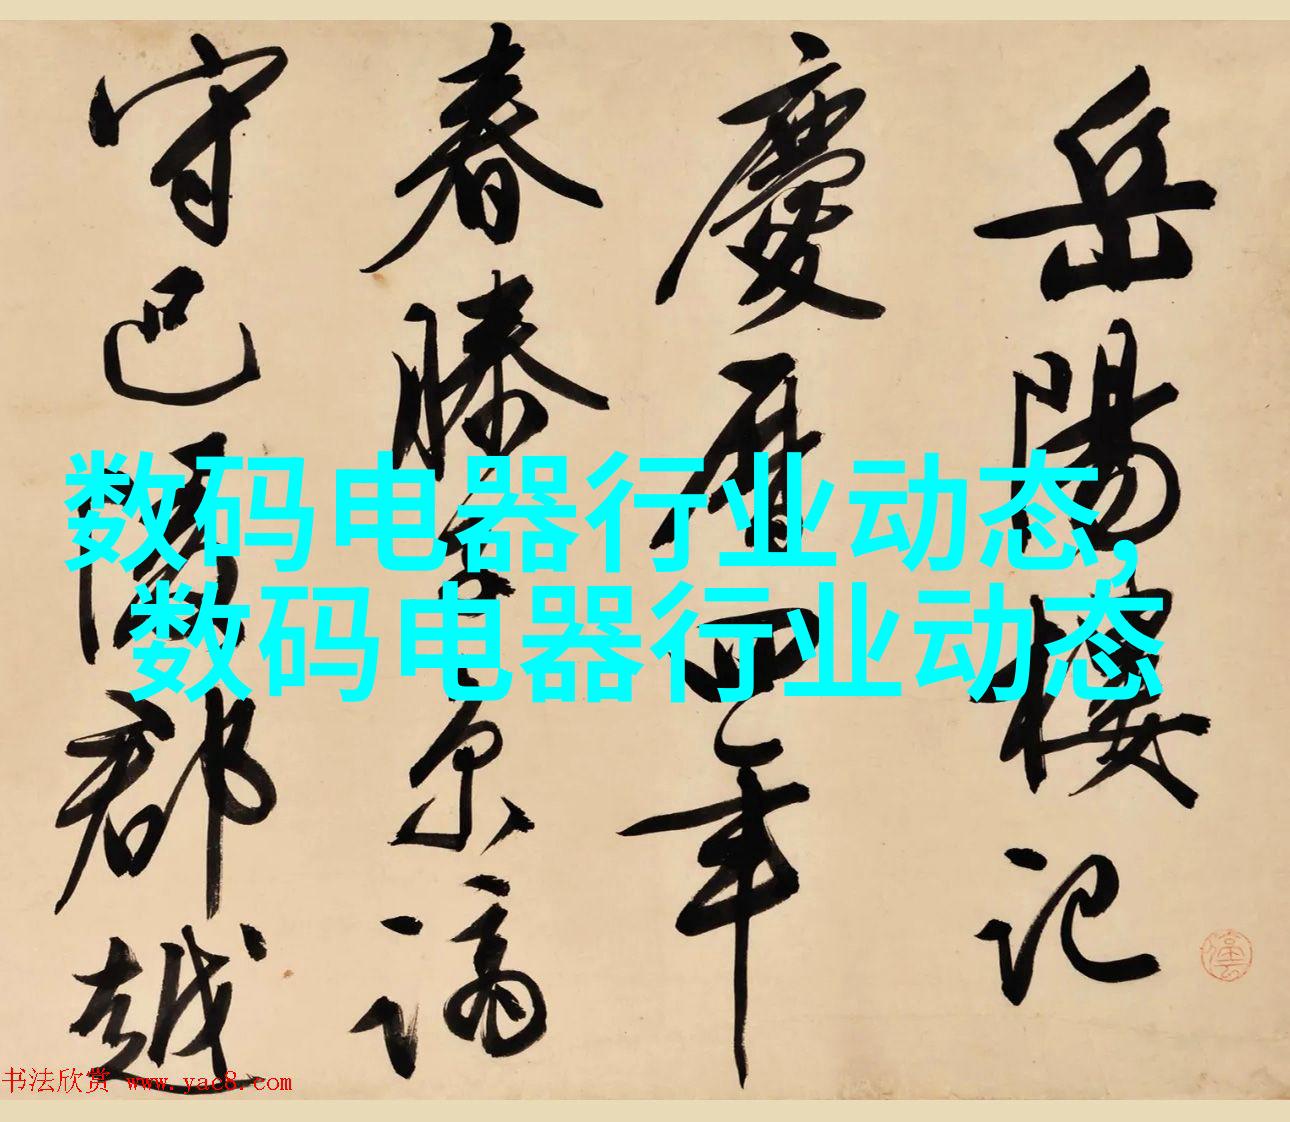 岳陽樓記
慶曆四年
春滕子京謫
守巴陵郡越
数码电器行业动态,
数码电器行业动态
书法欣赏 www.yac8.com